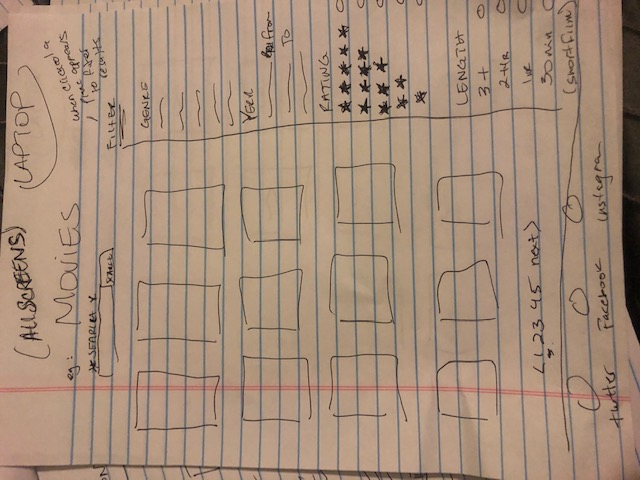 (ALL SCREENS)
LAPTOP
eg: MOVIES
when clicked a
pane appears
to filter
results
* SEARCH *
SEARCH
FILTER
GENRE
YEAR
from
TO
RATING
★★★★★
★★★★
★★★
★★
★
LENGTH
3+
2+HR
1HR
30 min
(short film)
< 1 2 3 4 5 next >
twitter
Facebook
instagram